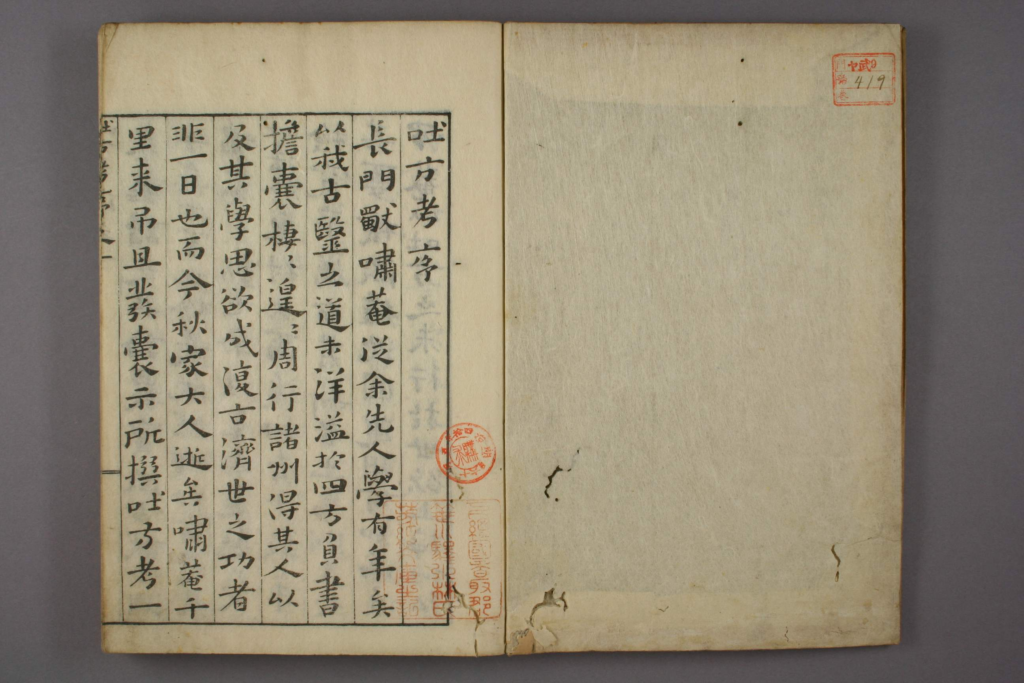 吐方考序
長門獸嘯菴從余先人學有年矣
以我古醫之道未洋溢於四方負書
擔囊棲〻遑〻周行諸州得其人以
及其學思欲成復古濟世之功者
非一日也而今秋家大人逝矣嘯菴千
里来吊且發囊示所撰吐方考一
吐方考序 一
419